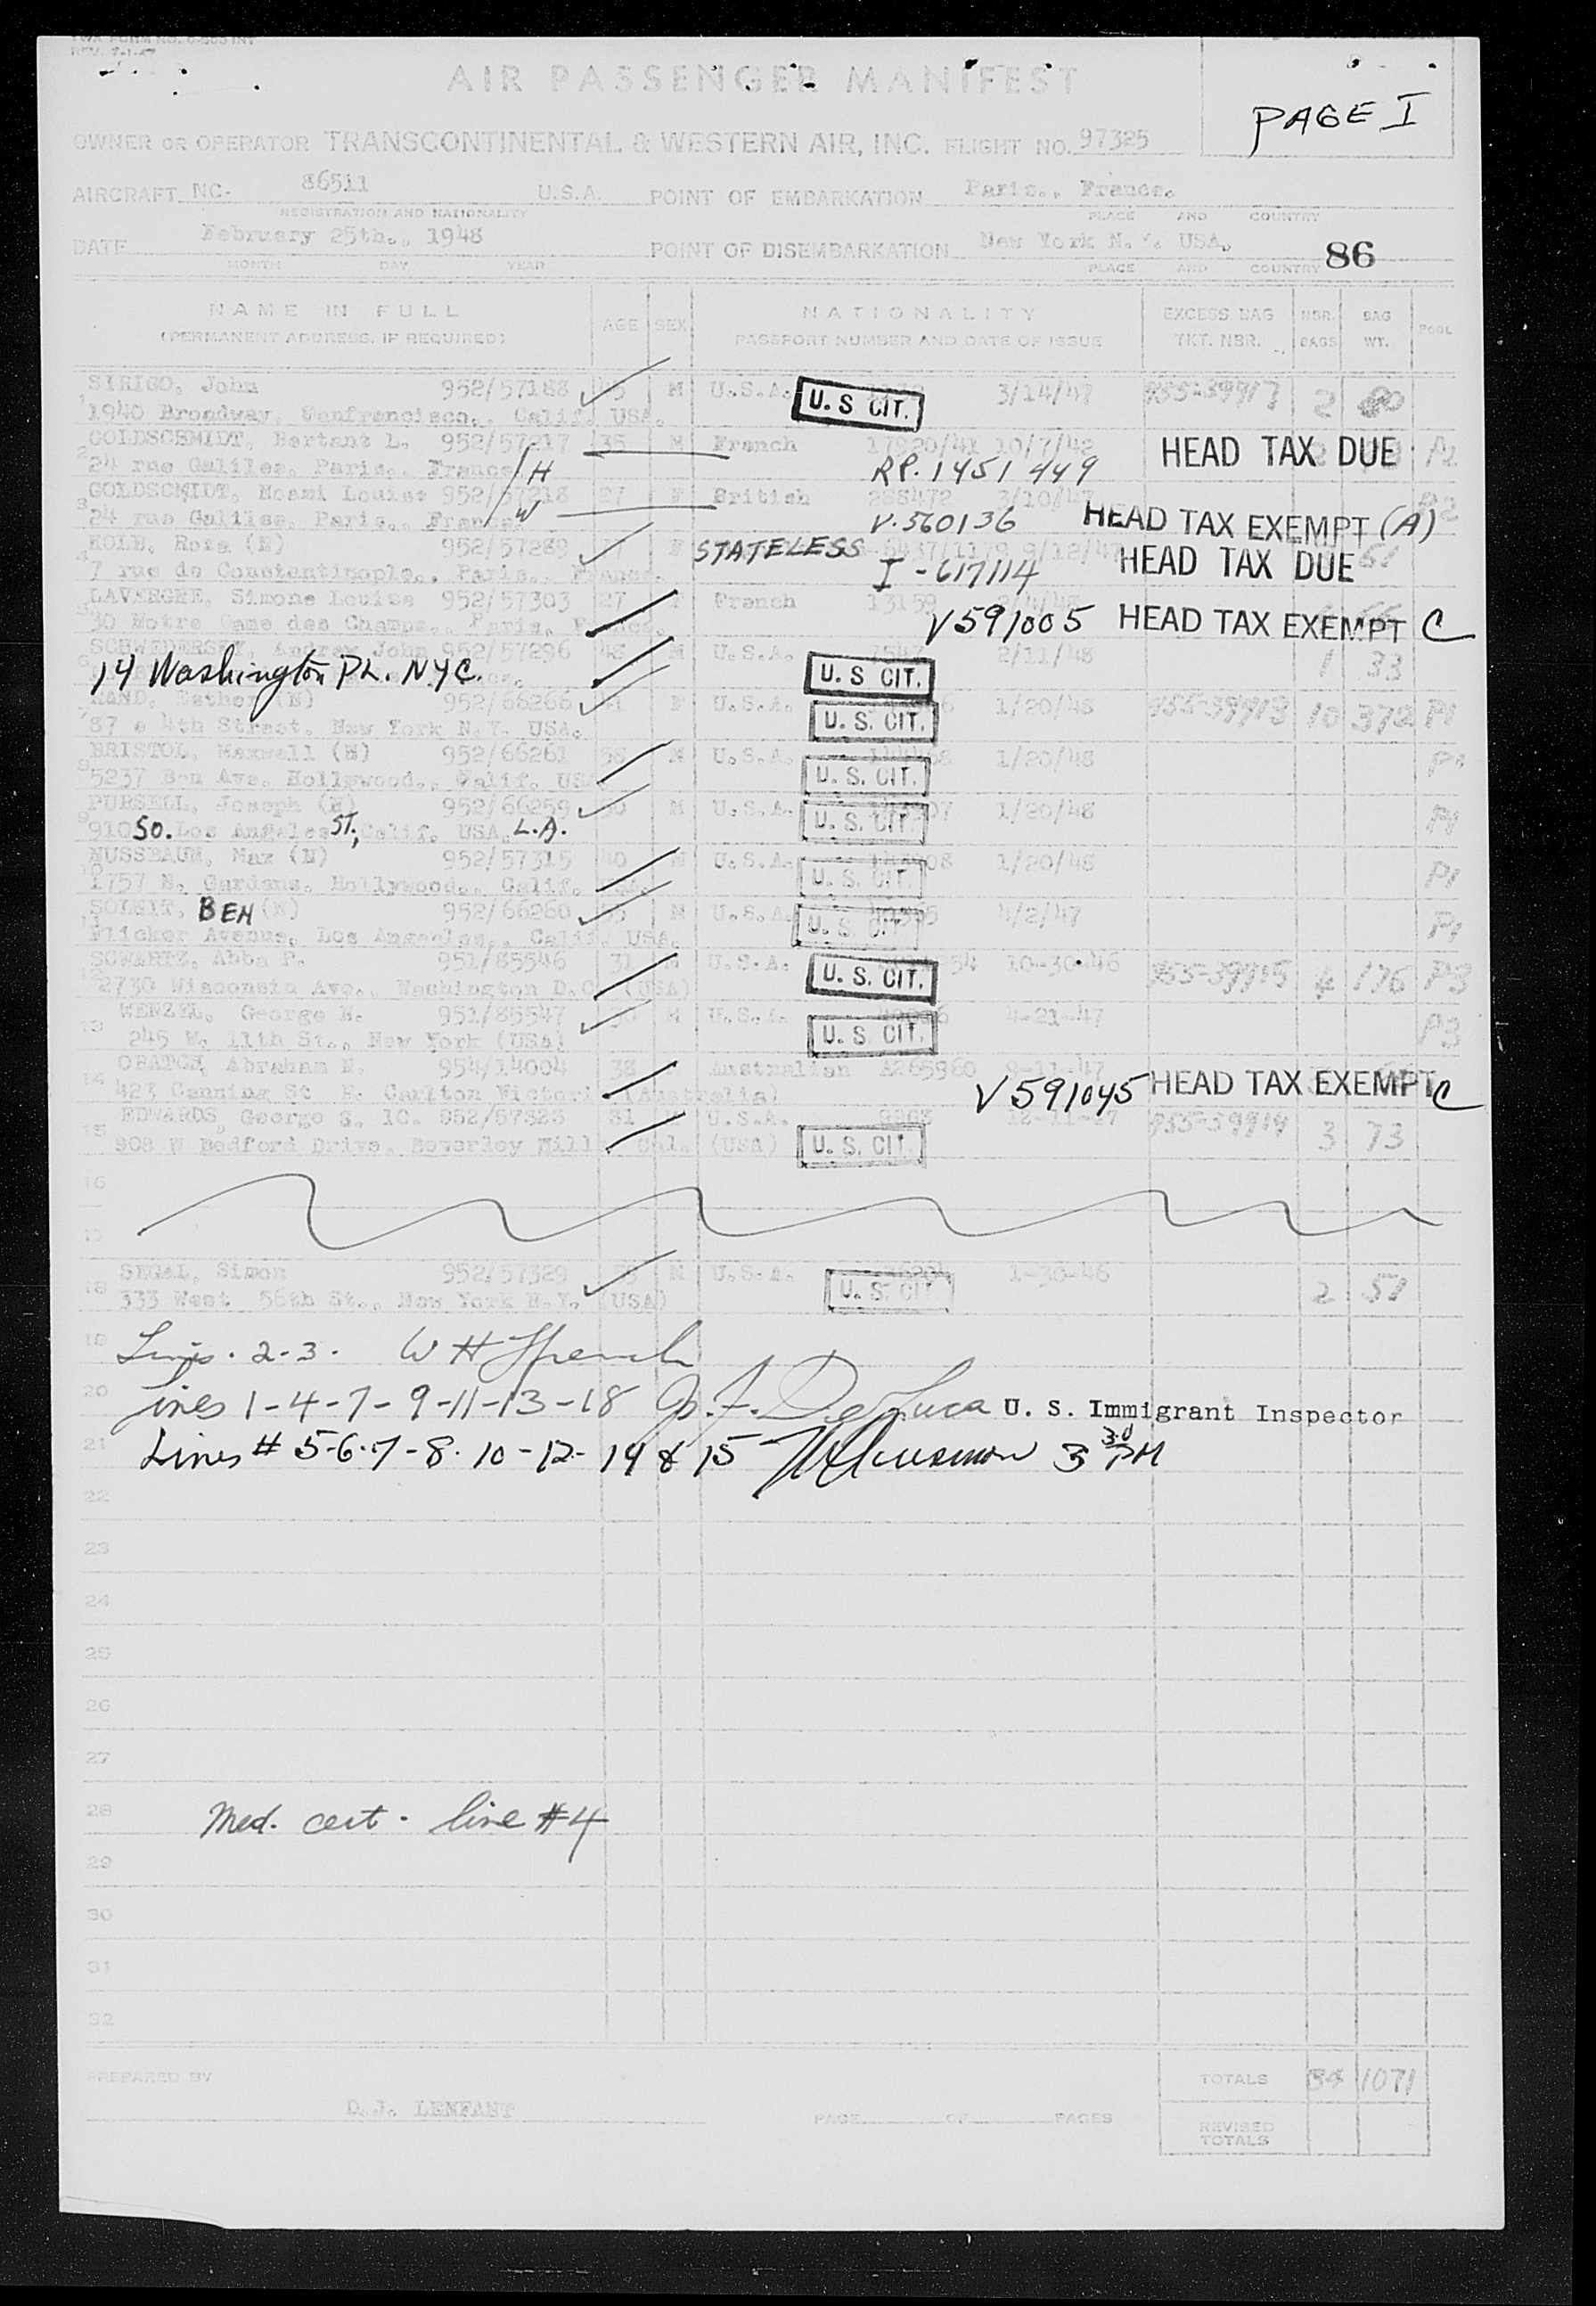 TWA FORM NO.
REV. 7-1-47
AIR PASSENGER MANIFEST
PAGE I
OWNER OR OPERATOR TRANSCONTINENTAL & WESTERN AIR, INC. FLIGHT NO. 97325
AIRCRAFT NC- 86511 U.S.A. POINT OF EMBARKATION Paris., France.
REGISTRATION AND NATIONALITY PLACE AND COUNTRY
DATE February 25th., 1948 POINT OF DISEMBARKATION New York N.Y. USA. 86
MONTH DAY YEAR PLACE AND COUNTRY
NAME IN FULL AGE SEX NATIONALITY EXCESS BAG NBR. BAG POOL
(PERMANENT ADDRESS, IF REQUIRED) PASSPORT NUMBER AND DATE OF ISSUE TKT. NBR. BAGS WT.
SIRIGO, John 952/57188 M U.S.A. U. S CIT. 3/14/47 955-39917 2
1 1940 Broadway, Sanfrancisco., Calif. USA.
GOLDSCHMIDT, Bertant L. 952/57217 35 M French 17920/41 10/7/42 HEAD TAX DUE
2 24 rue Galilee, Paris., France H RP. 1451449
GOLDSCMIDT, Noemi Louise 952/57218 27 F British 3/10/47
3 24 rue Galilee, Paris., France W V. 560136 HEAD TAX EXEMPT (A)
KOLB, Rosa (N) 952/57289 F STATELESS 9/12/47 61
4 7 rue de Constantinople., Paris., France. I-617114 HEAD TAX DUE
LAVERGNE, Simone Louise 952/57303 27 F French 13159
5 30 Notre Dame des Champs., Paris, France. V591005 HEAD TAX EXEMPT C
Andrew John 952/57296 M U.S.A. 2/11/48 1 33
14 Washington PL. NYC. U. S CIT.
Esther (N) 952/66266 F U.S.A. 1/20/48 955-39913 10 372 P1
87 e 4th Street. New York N.Y. USA. U. S. CIT.
BRISTOL, Maxwell (N) 952/66261 M U.S.A. 1/20/48 P1
5237 Ave. Hollywood., Calif. US U. S. CIT.
PURSELL, Joseph (N) 952/66259 M U.S.A. 1/20/48 P1
910 SO. Los Angeles ST, Calif. USA. L.A. U. S. CIT
NUSSBAUM, Max (N) 952/57315 40 M U.S.A. 1/20/48 P1
1757 N. Gardens. Hollywood., Calif. U. S. CIT.
BEN (N) 952/66260 M U.S.A. 4/2/47 P1
Flicker Avenue, Los Angeles., Calif. USA. U. S CIT
SCWARTZ, Abba P. 951/85546 31 M U.S.A. 10-30-46 955-39915 4 176 P3
12 2730 Wisconsin Ave., Washington D.C. (USA) U. S. CIT.
13 WENZEL, George H. 951/85547 M U.S.A. 4-21-47 P3
245 W. 11th St., New York (USA) U. S CIT.
14 Abraham N. 954/14004 38 Australian A265960 9-11-47
423 Canning St N. Carlton Victoria (Australia) V591045 HEAD TAX EXEMPT C
15 EDWARDS, George S. 10. 952/57326 31 U.S.A. 12-11-47 955-39914 3 73
908 N Bedford Drive. Beverley Hill Cal. (USA) U. S. CIT
16
17
18 SEGAL, Simon 952/57329 M U.S.A. 1-30-46 2 51
333 West 56th St., New York N.Y. (USA) U. S. CIT
19 Lines. 2-3. W H
20 Lines 1-4-7-9-11-13-18 J. F. DeLuca U. S. Immigrant Inspector
21 Lines # 5-6-7-8-10-12-14 & 15 3 30 PM
22
23
24
25
26
27
28 Med. cert. line #4
29
30
31
32
PREPARED BY TOTALS 34 1071
D.J. LENFANT PAGE OF PAGES REVISED
TOTALS